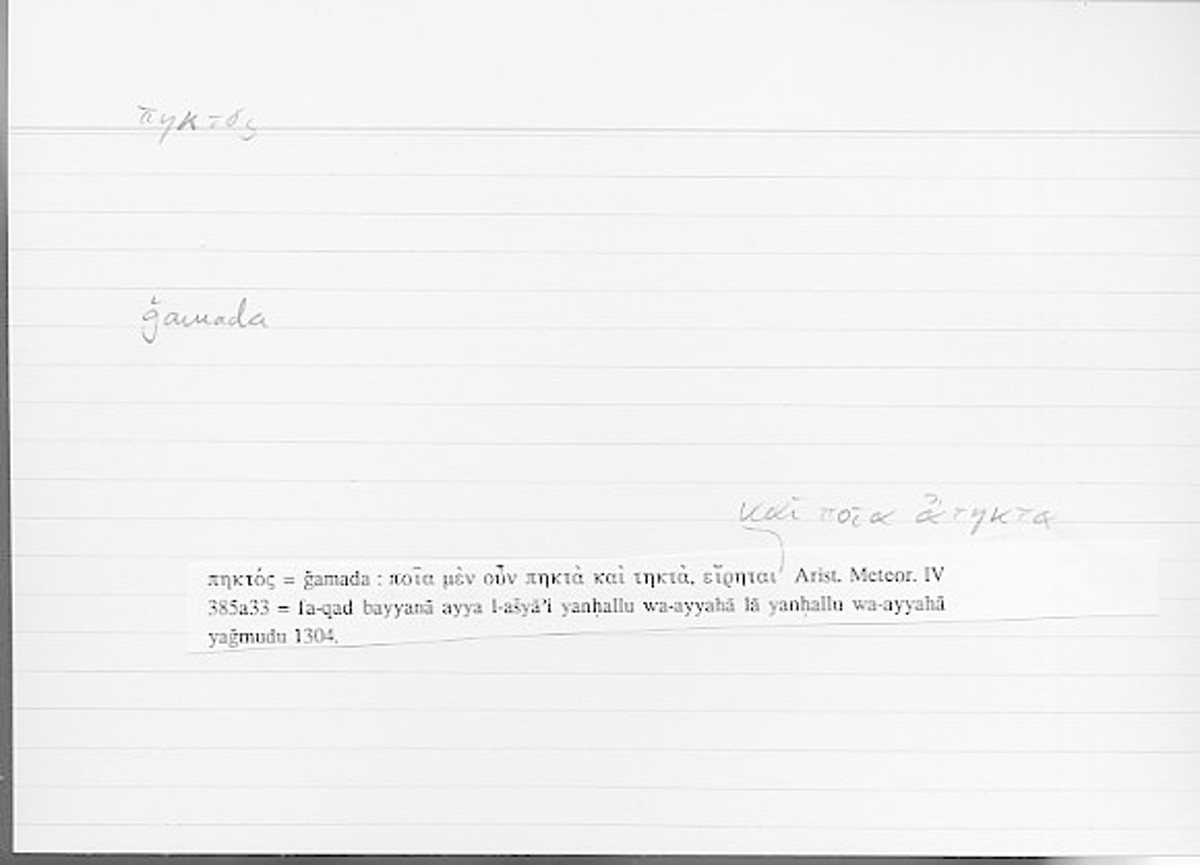 πηκτός
ǧamada
καὶ ποῖα ἄτηκτα
πηκτός = ǧamada : ποῖα μὲν οὖν πηκτὰ καὶ τηκτὰ, εἴρηται Arist. Meteor. IV
385a33 = fa-qad bayyanā ayya l-ašyā’i yanḥallu wa-ayyahā lā yanḥallu wa-ayyahā
yaǧmudu 1304.